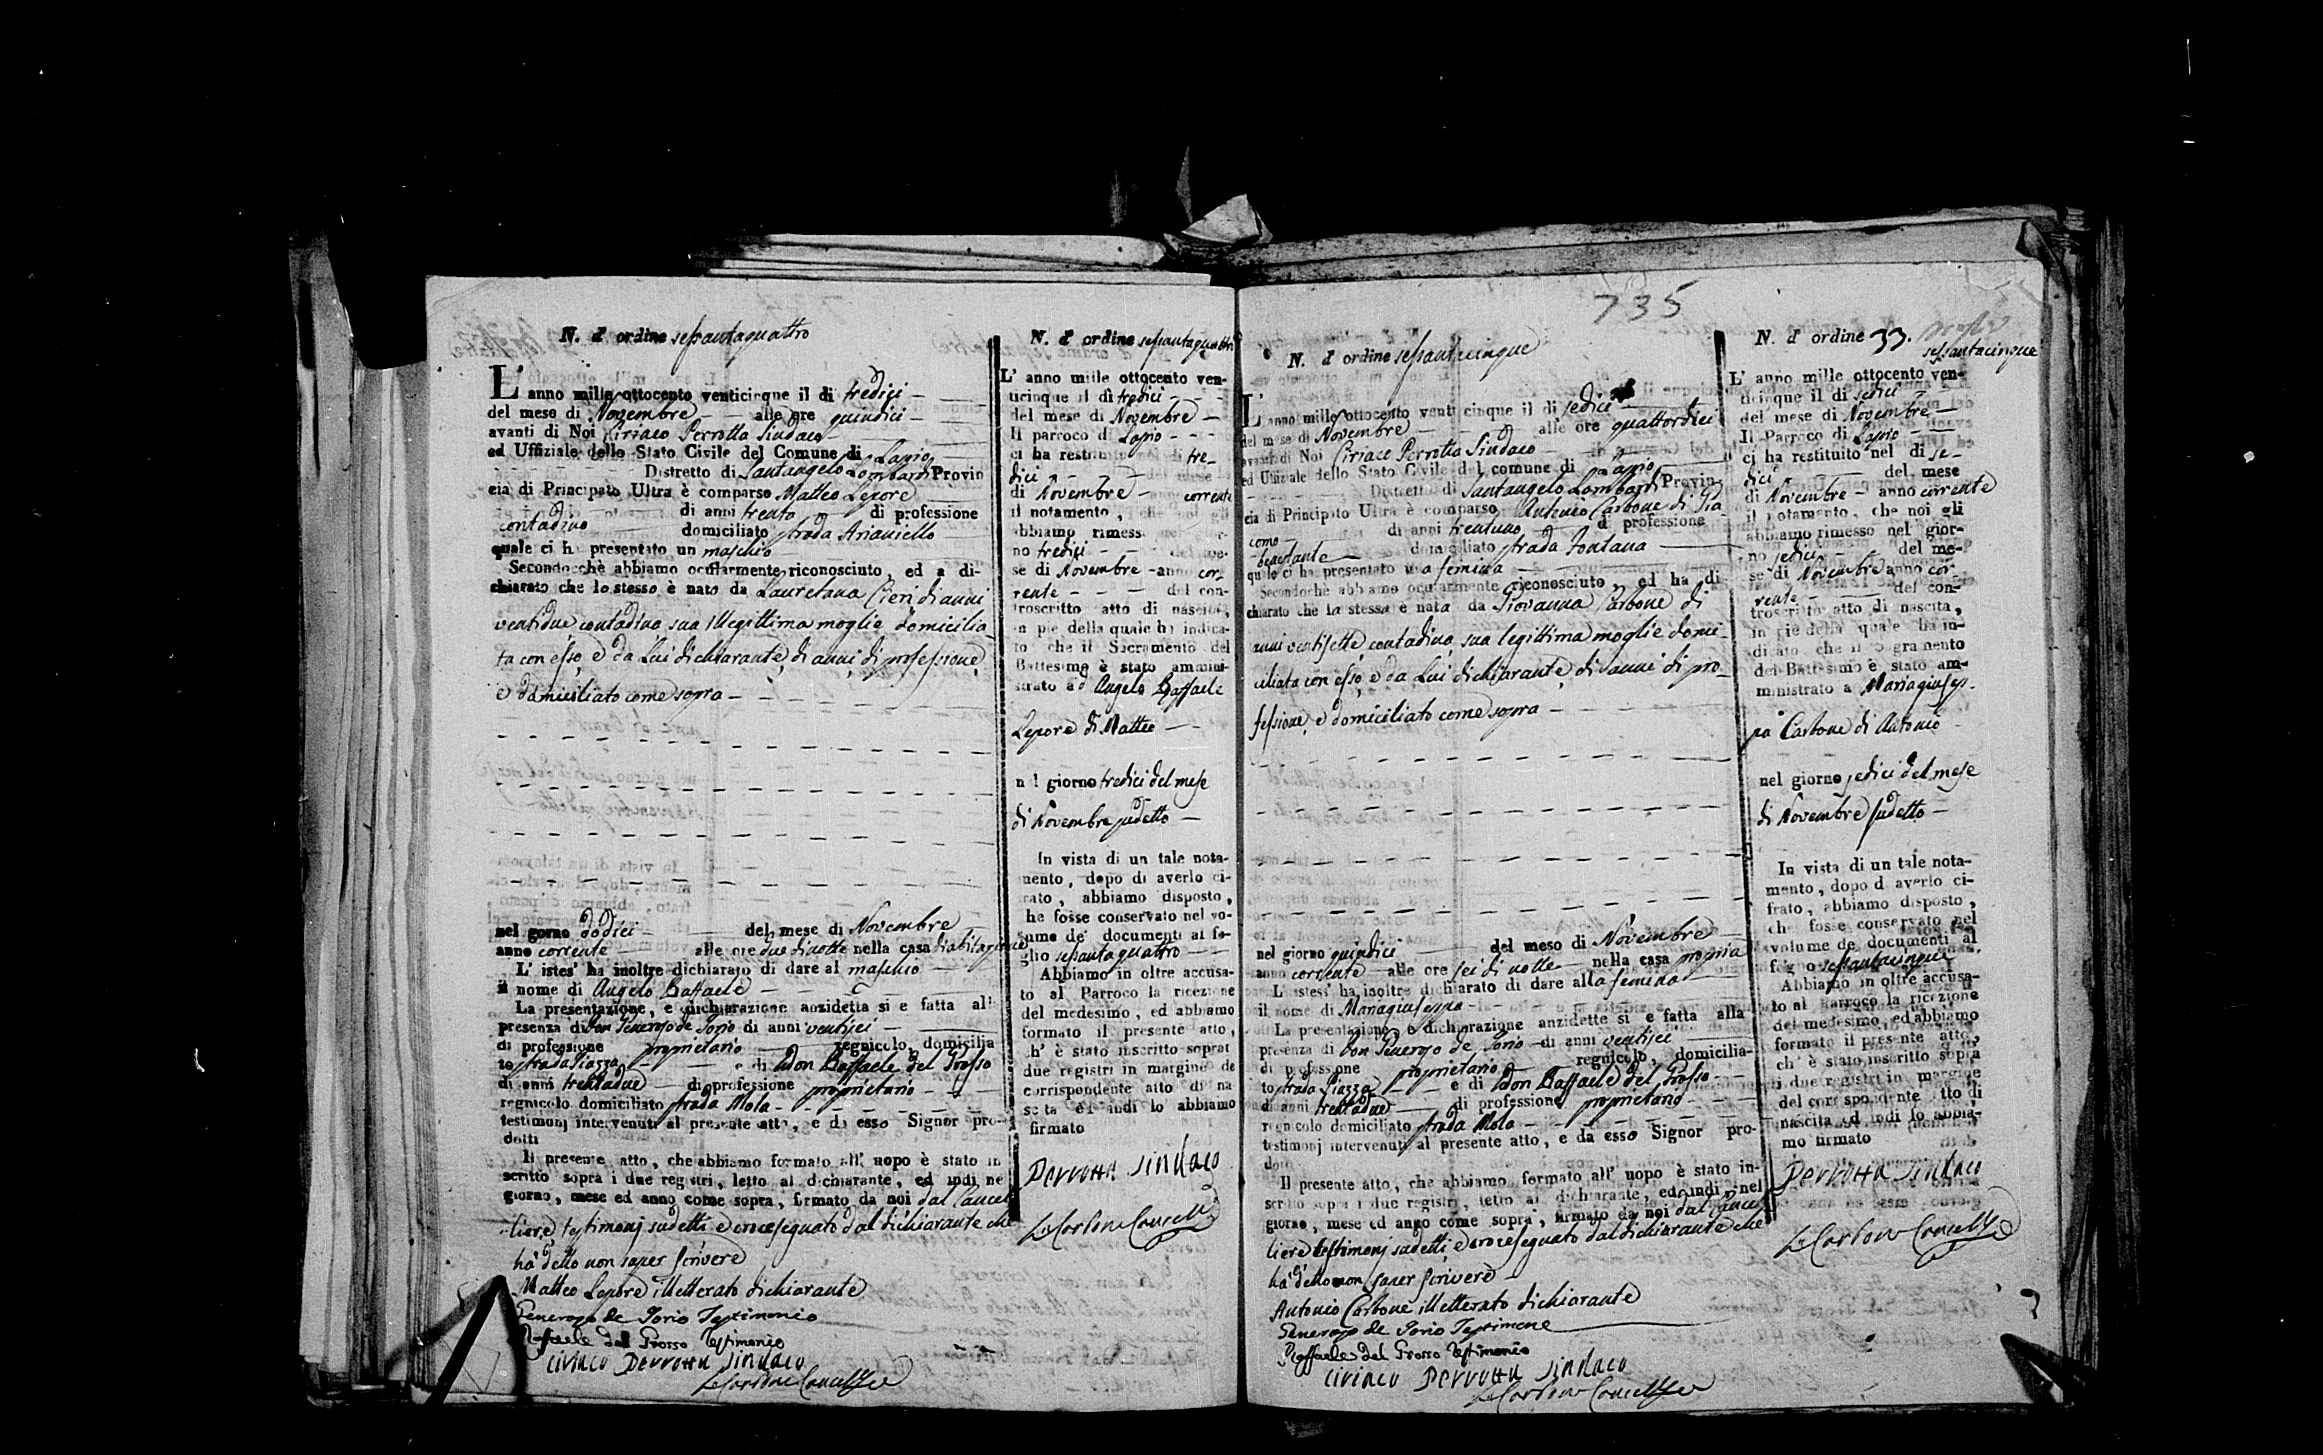 N. d' ordine sessantaquattro
L' anno mille ottocento venticinque il di tredici
del mese di Novembre alle ore quindici
avanti di Noi Ciriaco Perrotta Sindaco
ed Uffiziale dello Stato Civile del Comune di Lapio
Distretto di Santangelo Lombardi Provin
cia di Principato Ultra è comparso Matteo Lepore
di anni trenta di professione
contadino domiciliato strada Arianiello
quale ci ha presentato un maschio
Secondocchè abbiamo ocularmente riconosciuto, ed a di-
chiarato che lo stesso è nato da Lauretana
di anni
ventidue contadina sua legittima moglie domicilia
ta con esso, e da Lui dichiarante, di anni, di professione,
e domiciliato come sopra
nel gorno dodici del mese di Novembre
anno corrente alle ore due di notte nella casa d'abitazione
L' istes' ha inoltre dichiarato di dare al maschio
il nome di Angelo Raffaele
La presentazione, e dichiarazione anzidetta si e fatta all
presenza di Don Generoso de Iorio di anni ventisei
di professione proprietario regnicolo, domicilia
to strada Piazza e di Don Raffaele del Grosso
di anni trentadue di professione proprietario
regnicolo domiciliato strada Mola
testimonj intervenuti al presente atto, e da esso Signor pro-
dotti
Il presente atto, che abbiamo formato all' uopo è stato in
scritto sopra i due registri, letto al dichiarante, ed indi ne
giorno, mese ed anno come sopra, firmato da noi dal Cancel
liere, testimonj sudetti e crocesegnato dal dichiarante che
ha detto non saper scrivere
Matteo Lepore illetterato dichiarante
Generoso de Iorio Testimonio
Raffaele del Grosso Testimonio
Ciriaco Perrotta Sindaco
N. d' ordine sessantaquattro
L' anno mille ottocento ven-
ticinque il dì tredici
del mese di Novembre
Il parroco di Lapio
ci ha restituito nel di tre-
dici
di Novembre corrente
il notamento, che noi gli
abbiamo rimesso
no tredici del me-
se di Novembre anno cor-
rente del con-
troscritto atto di nascita,
in piè della quale ha indica-
to che il Sacramento del
Battesimo è stato ammini-
strato ad Angelo Raffaele
Lepore di Matteo
nel giorno tredici del mese
di Novembre sudetto
In vista di un tale nota-
mento, dopo di averlo ci-
frato, abbiamo disposto,
che fosse conservato nel vo-
lume de' documenti al fo-
glio sessantaquattro
Abbiamo in oltre accusa-
to al Parroco la ricezione
del medesimo, ed abbiamo
formato il presente atto,
ch' è stato inscritto sopra
due registri in margine de
corrispondente atto di na
scita ed indi lo abbiamo
firmato
Perrotta Sindaco
735
N. d' ordine sessantacinque
L' anno mille ottocento venti cinque il di sedici
del mese di Novembre alle ore quattordici
avanti di Noi Ciriaco Perrotta Sindaco
ed Uffiziale dello Stato Civile del comune di Lapio
Distretto di Santangelo Lombardi Provin-
cia di Principato Ultra è comparso Antonio Carbone di Gia
como di anni trentuno di professione
benestante domiciliato strada Fontana
quale ci ha presentato una femina
Secondochè abbiamo ocularmente riconosciuto, ed ha di
chiarato che la stessa è nata da Giovanna Carbone di
anni ventisette contadina, sua legittima moglie domi-
ciliata con esso, e da Lui dichiarante, di anni di pro-
fessione, e domiciliato come sopra
nel giorno quindici del mese di Novembre
anno corrente alle ore sei di notte nella casa propria
L' istess' ha inoltre dichiarato di dare alla femina
il nome di Mariagiuseppa
La presentazione, e dichiarazione anzidette si e fatta alla
presenza di Don Generoso de Iorio di anni ventisei
di professione proprietario regnicolo, domicilia-
to strada Piazza e di Don Raffaele del Grosso
di anni trentadue di professione proprietario
regnicolo domiciliato strada Mola
testimonj intervenuti al presente atto, e da esso Signor pro-
dotti
Il presente atto, che abbiamo formato all' uopo è stato in-
scritto sopra i due registri, letto al dichiarante, ed indi nel
giorno, mese ed anno come sopra, firmato da noi dal Cancel
liere testimonj sudetti, e crocesegnato dal dichiarante che
ha detto non saper scrivere
Antonio Carbone illetterato dichiarante
Generoso de Iorio Testimone
Raffaele del Grosso Testimonio
Ciriaco Perrotta Sindaco
N. d' ordine 33.
sessantacinque
L' anno mille ottocento ven-
ticinque il di sedici
del mese di Novembre
Il Parroco di Lapio
ci ha restituito nel di se-
dici del mese
di Novembre anno corrente
il notamento, che noi gli
abbiamo rimesso nel gior-
no sedici del me-
se di Novembre anno cor
rente del con-
troscritto atto di nascita,
in piè della quale ha in-
dicato che il Sagramento
del Battesimo è stato am-
ministrato a Mariagiusep-
pa Carbone di Antonio
nel giorno sedici del mese
di Novembre sudetto
In vista di un tale nota-
mento, dopo d averlo ci-
frato, abbiamo disposto,
che fosse conservato nel
volume de documenti al
foglio sessantacinque
Abbiamo in oltre accusa-
to al Parroco la ricezione
del medesimo, ed abbiamo
formato il presente atto,
ch' è stato inscritto sopra
i due registri in margine
del corrispondente atto di
nascita ed indi lo abbia-
mo firmato
Perrotta Sindaco